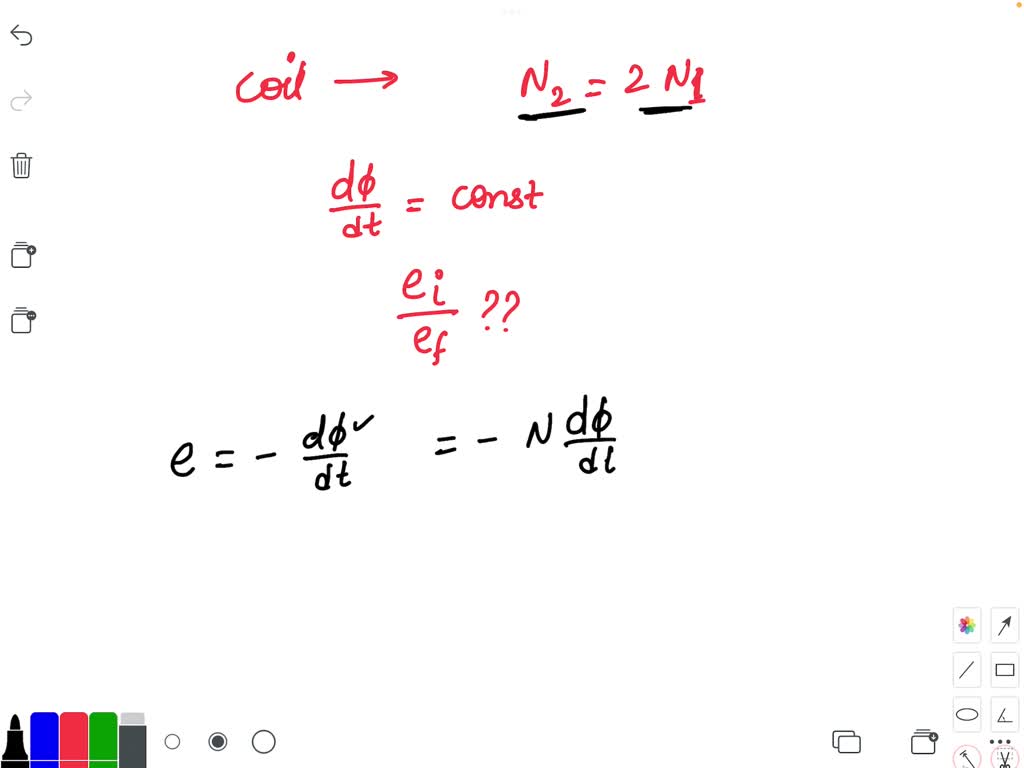 coil → N₂ = 2 N1
dϕ/dt = const
eᵢ/e_f ??
e = - dϕ/dt ✓ = - N dϕ/dt